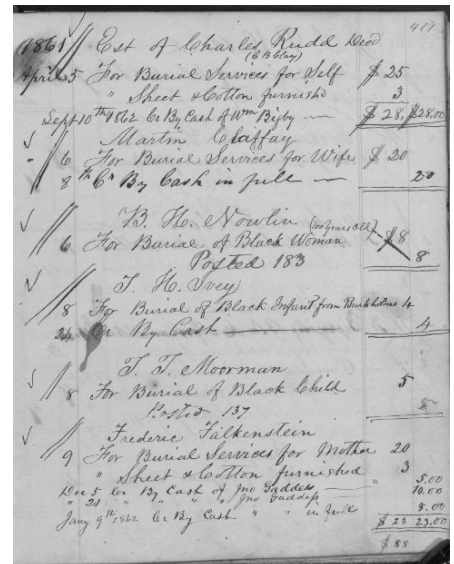 417
1861 Est of Charles Rudd Decd
(C B Clay)
April 5 For Burial Services for Self $ 25
" Sheet & Cotton furnished 3
Sept 10th 1862 Cr By Cash of Wm Bigby — $ 28, $28.00
Martin Claffay
6 For Burial Services for Wife $ 20
8th Cr By Cash in full — 20
B. H. Nowlin (100 years old)
6 For Burial of Black Woman $8
Posted 183 8
T. H. Ivey
8 For Burial of Black Infant from 4
24 Cr By Cash 4
T. T. Moorman
8 For Burial of Black Child 5
Posted 137 5
Frederic Falkenstein
9 For Burial Services for Mother 20
" Sheet & Cotton furnished 3
Decr 5 Cr By Cash of Jno Gaddess — 5.00
" 21 " " " " Jno Gaddess 10.00
Jany 9th 1862 Cr By Cash " " in full 8.00
$ 23 23.00
$ 88